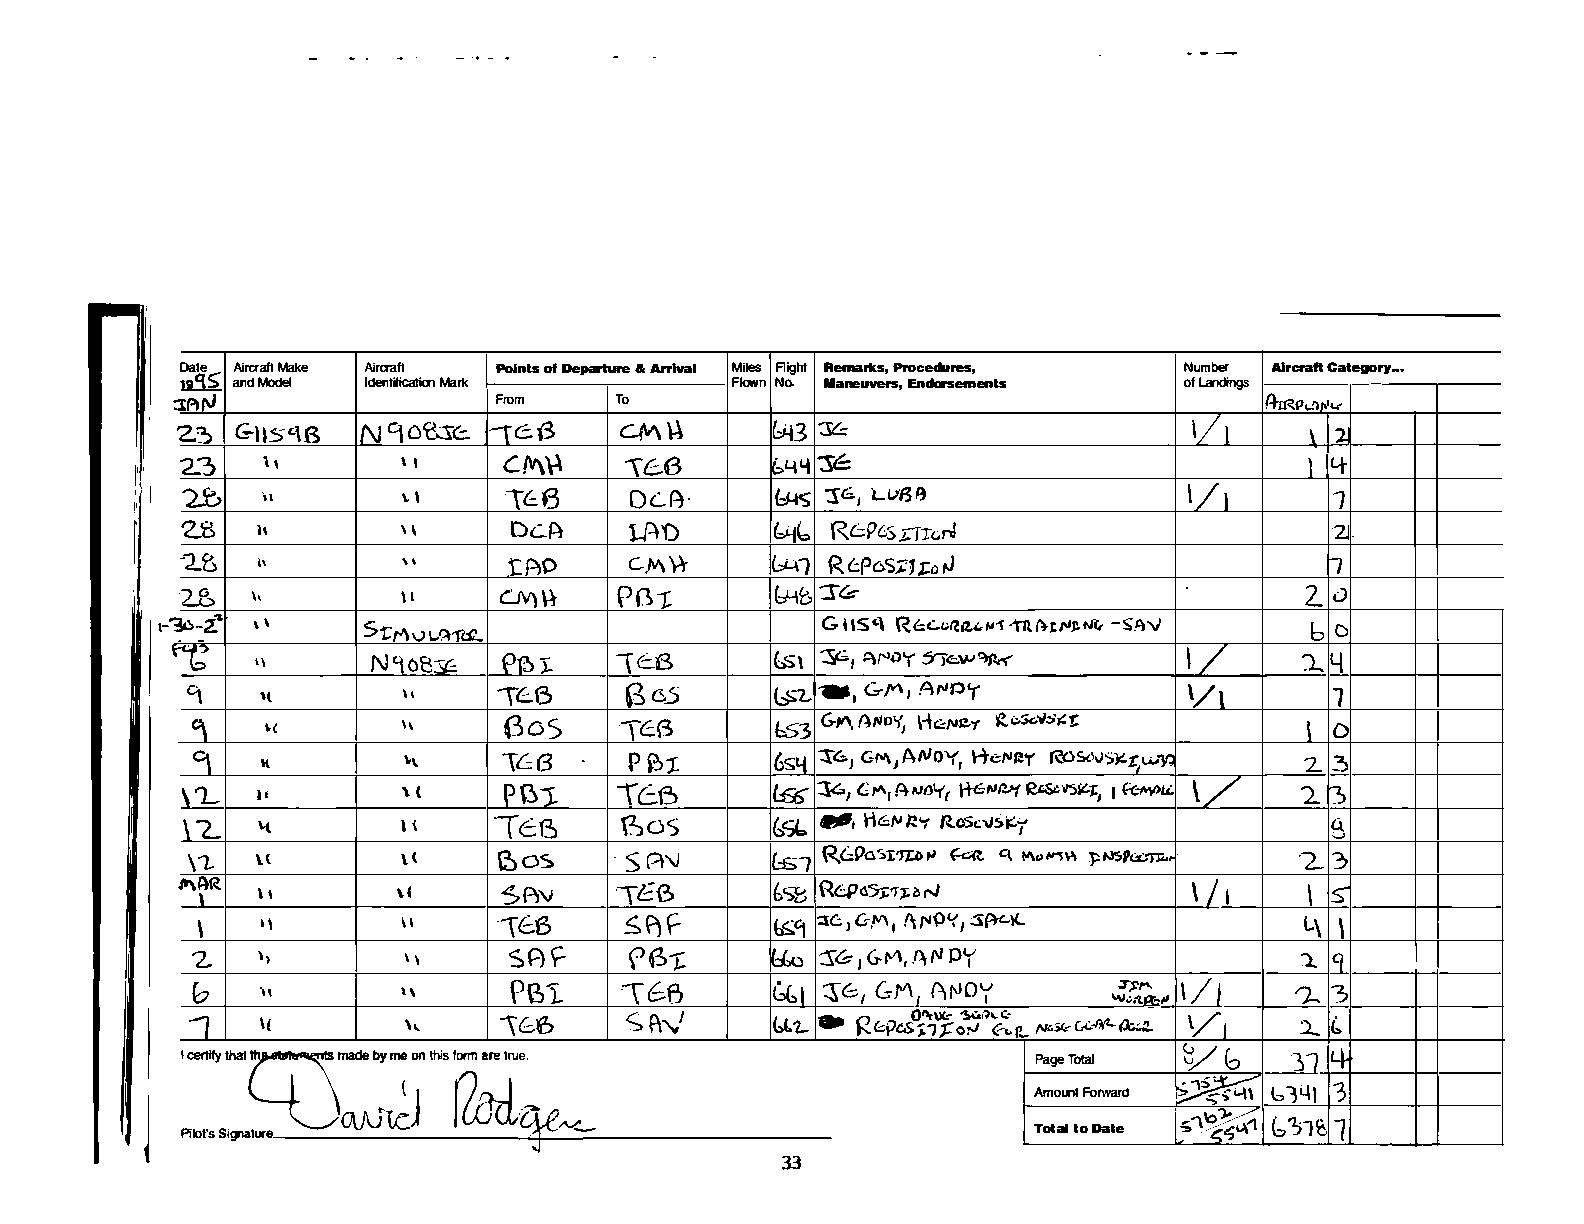 Date Aircraft Make Aircraft Points of Departure & Arrival Miles Flight Remarks, Procedures, Number Aircraft Category...
1995 and Model Identification Mark Flown No. Maneuvers, Endorsements of Landings
JAN From To AIRPLANE
23 G1159B N908JE TEB CMH 643 JE 1/1 1 2
23 " " CMH TEB 644 JE 1 4
28 " " TEB DCA 645 JE, LUBA 1/1 7
28 " " DCA IAD 646 REPOSITION 2
28 " " IAD CMH 647 REPOSITION 7
28 " " CMH PBI 648 JE 2 0
1-30-2 " SIMULATOR G1159 RECURRENT TRAINING -SAV 6 0
6 " N908JE PBI TEB 651 JE, ANDY STEWART 1/ 2 4
9 " " TEB BOS 652 , GM, ANDY 1/1 7
9 " " BOS TEB 653 GM, ANDY, HENRY ROSOVSKI 1 0
9 " " TEB PBI 654 JE, GM, ANDY, HENRY ROSOVSKI, 2 3
12 " " PBI TEB 655 JE, GM, ANDY, HENRY ROSOVSKI, 1 FEMALE 1/ 2 3
12 " " TEB BOS 656 , HENRY ROSOVSKY 9
12 " " BOS SAV 657 REPOSITION FOR 9 MONTH INSPECTION 2 3
MAR
1 " " SAV TEB 658 REPOSITION 1/1 1 5
1 " " TEB SAF 659 JE, GM, ANDY, JACK 4 1
2 " " SAF PBI 660 JE, GM, ANDY 2 9
6 " " PBI TEB 661 JE, GM, ANDY JIM WORDEN 1/1 2 3
7 " " TEB SAV 662 REPOSITION FOR NOSE GEAR DOOR 1/1 2 6
I certify that the statements made by me on this form are true. Page Total 8/6 37 4
Amount Forward 5754/5541 6341 3
David Rodgers
Pilot's Signature Total to Date 5762/5547 6378 7
33